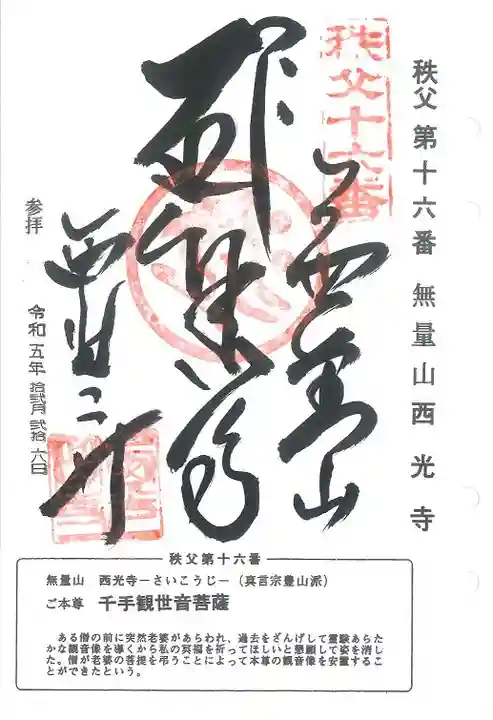 秩父 第十六番 無量山 西光寺
秩父十六番
無量山
西光寺
参拝
令和五年 拾弐月 弐拾六日
秩父第十六番
無量山 西光寺－さいこうじ－（真言宗豊山派）
ご本尊 千手観世音菩薩
ある僧の前に突然老婆があらわれ、過去をざんげして霊験あらた
かな観音像を導くから私の冥福を祈ってほしいと懇願して姿を消し
た。僧が老婆の菩提を弔うことによって本尊の観音像を安置するこ
とができたという。